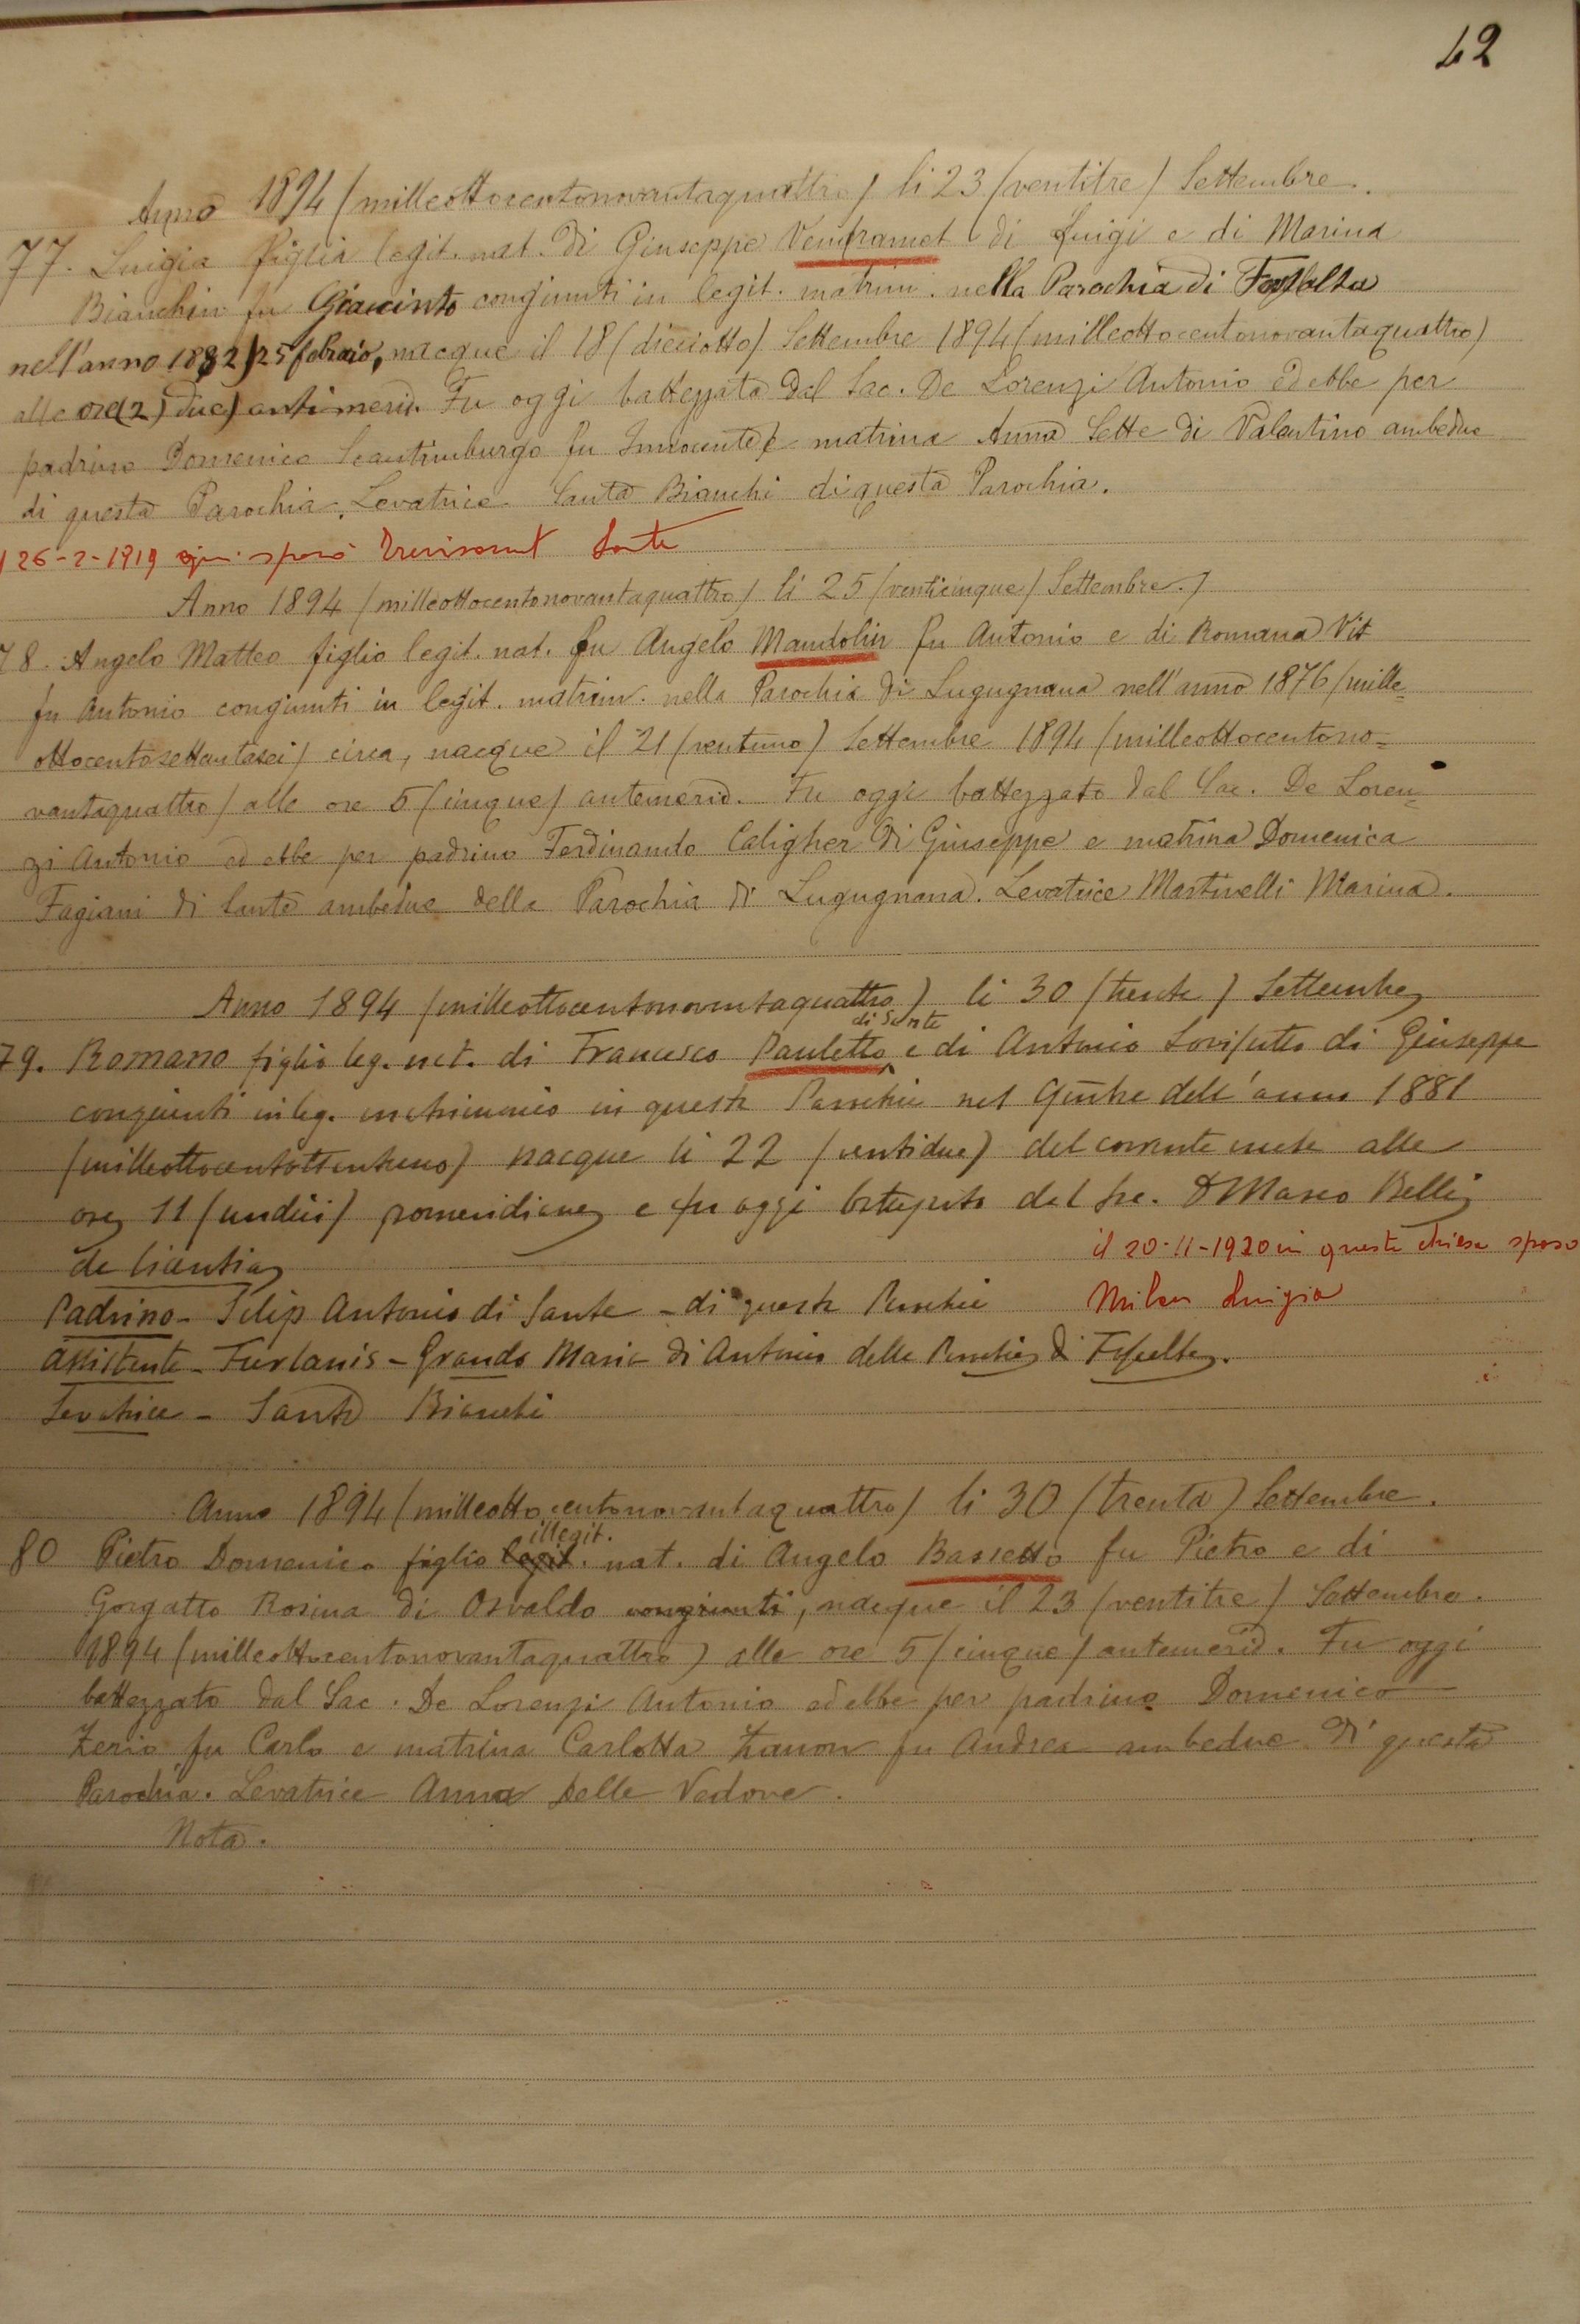 42
Anno 1894 (milleottocentonovantaquattro) li 23 (ventitre) Settembre.
77. Luigia figlia legit. nat. di Giuseppe Vendramet di Luigi e di Marina
Bianchin fu Giacinto congiunti in legit. matrim. nella Parochia di Fossalta
nell'anno 1882 (25 febraio, nacque il 18 (dieciotto) Settembre 1894 (milleottocentonovantaquattro)
alle ore (2) due) antimerid. Fu oggi battezzata dal Sac. De Lorenzi Antonio ed ebbe per
padrino Domenico Scantimburgo fu Innocente e matrina Anna Sette di Valentino ambedue
di questa Parochia. Levatrice Santa Bianchi di questa Parochia.
26-2-1919 sposò Trevisanut Sante
Anno 1894 (milleottocentonovantaquattro) li 25 (venticinque) Settembre.)
78. Angelo Matteo figlio legit. nat. fu Angelo Mandolin fu Antonio e di Romana Vit
fu Antonio congiunti in legit. matrim. nella Parochia di Lugugnana nell'anno 1876 (mille=
ottocentosettantasei) circa, nacque il 21 (ventuno) Settembre 1894 (milleottocentono=
vantaquattro) alle ore 5 (cinque) antemerid. Fu oggi battezzato dal Sac. De Loren=
zi Antonio ed ebbe per padrino Ferdinando Caligher di Giuseppe e matrina Domenica
Fagiani di Sante ambedue della Parochia di Lugugnana. Levatrice Martinelli Marina.
Anno 1894 (milleottocentonovantaquattro) li 30 (trenta) Settembre
di Sante
79. Romano figlio leg. nat. di Francesco Pauletto e di Antonia Lovisutto di Giuseppe
congiunti in leg. matrimonio in questa Parochia nel dell'anno 1881
(milleottocentottantuno) nacque li 22 (ventidue) del corrente mese alle
ore 11 (undici) pomeridiane e fu oggi battezzato dal Sac. D Marco Belli
de licentia
il 20-11-1920 in questa chiesa sposo
Padrino - Filip Antonio di Sante - di questa Parochia
Milan Luigia
Assistente - Furlanis - Grando Maria di Antonio della Parochia di Fossalta.
Levatrice - Santa Bianchi
Anno 1894 (milleottocentonovantaquattro) li 30 (trenta) Settembre.
illegit.
80 Pietro Domenico figlio legit. nat. di Angelo Bassetto fu Pietro e di
Gorgatto Rosina di Osvaldo congiunti, nacque il 23 (ventitre) Settembre.
1894 (milleottocentonovantaquattro) alle ore 5 (cinque) antemerid. Fu oggi
battezzato dal Sac. De Lorenzi Antonio ed ebbe per padrino Domenico
Zerio fu Carlo e matrina Carlotta Zanon fu Andrea ambedue di questa
Parochia. Levatrice Anna Delle Vedove.
Nota.